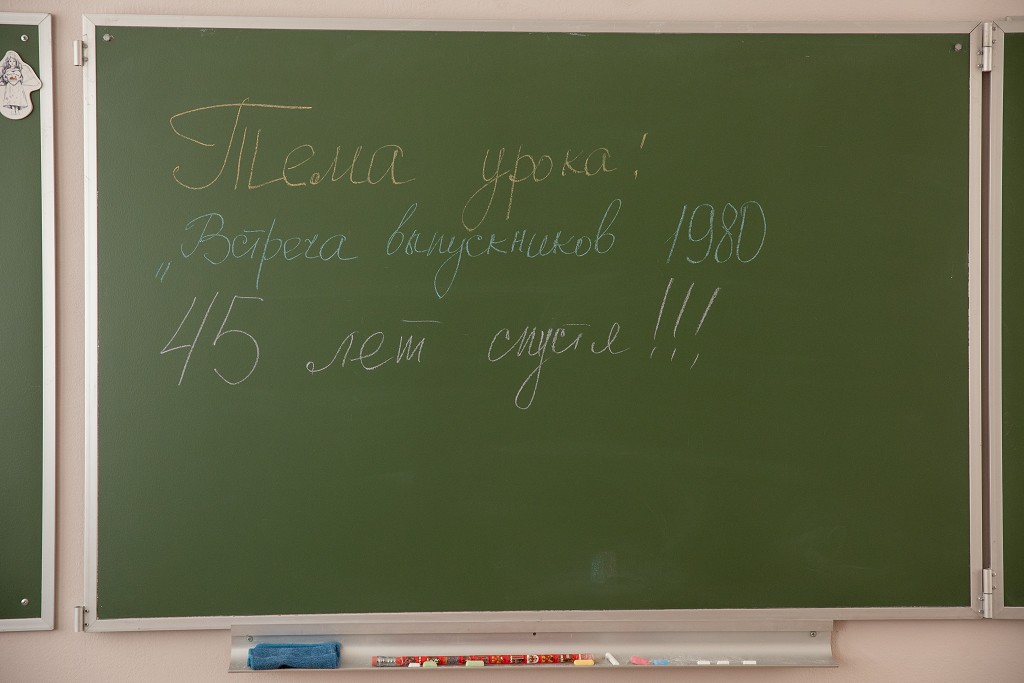 Тема урока!
„Встреча выпускников 1980
45 лет спустя!!!